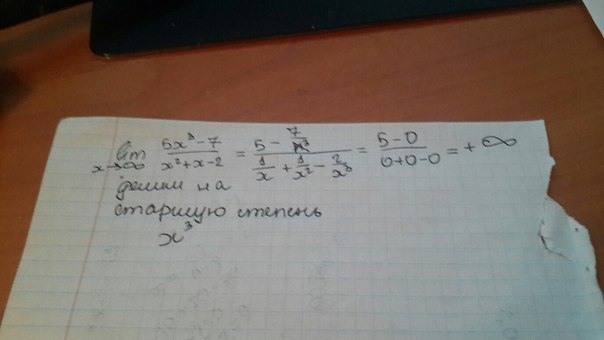 lim x→∞ (5x³ - 7)/(x² + x - 2) = (5 - 7/x³)/(1/x + 1/x² - 2/x³) = (5 - 0)/(0 + 0 - 0) = + ∞
делим на
старшую степень
x³